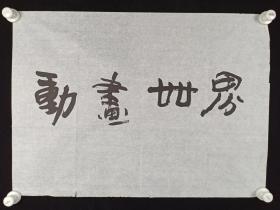 動畫世界